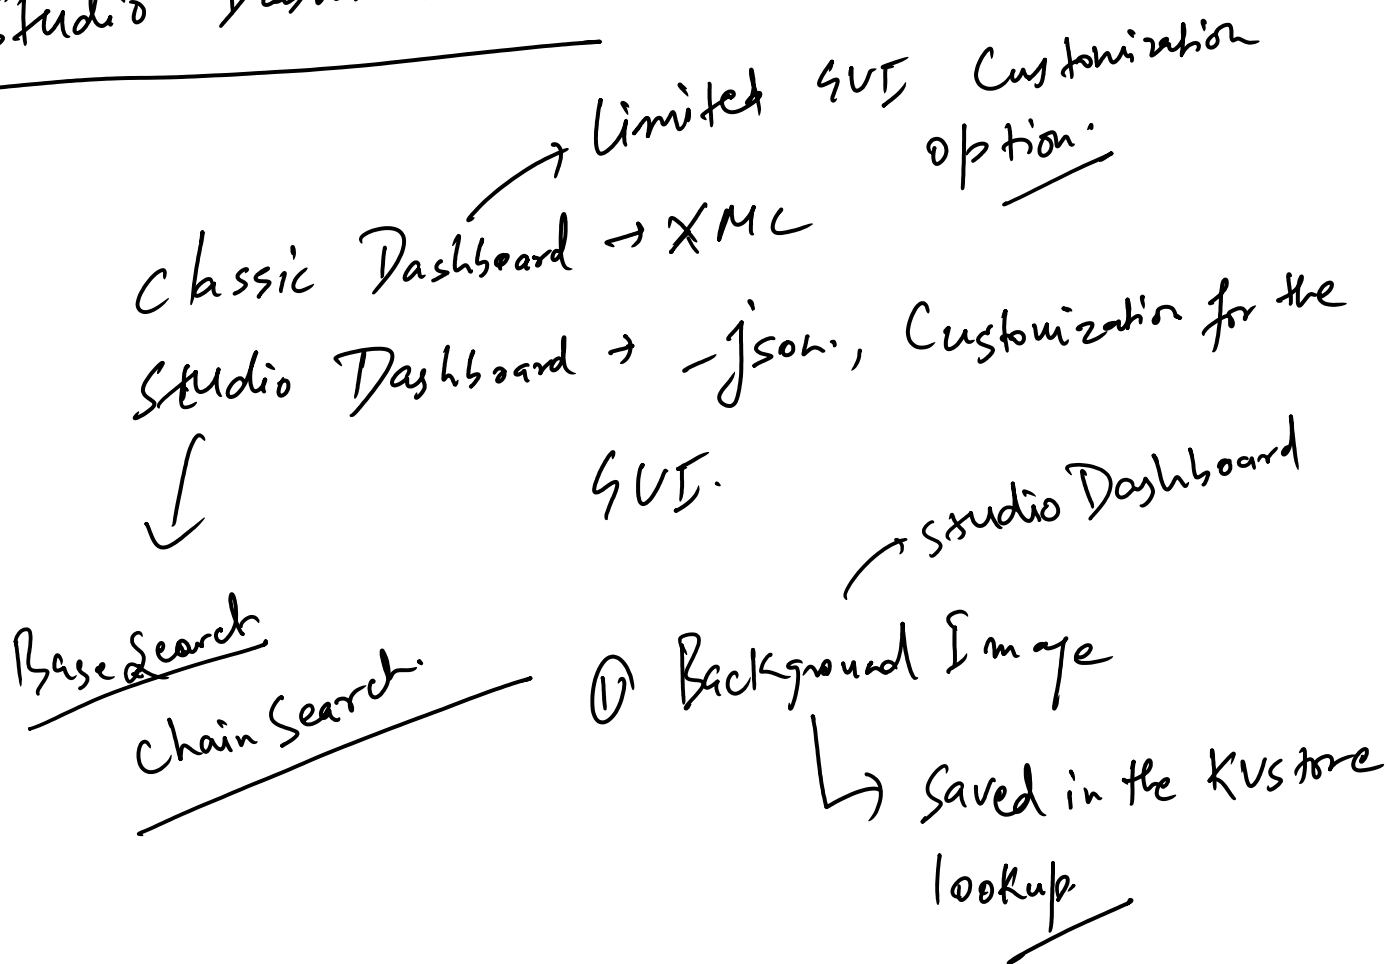 Studio
Limited GUI Customization
option.
Classic Dashboard → XML
Studio Dashboard → .json., Customization for the
GUI.
Studio Dashboard
Base Search
Chain Search.
① Background Image
Saved in the KVstore
lookup.